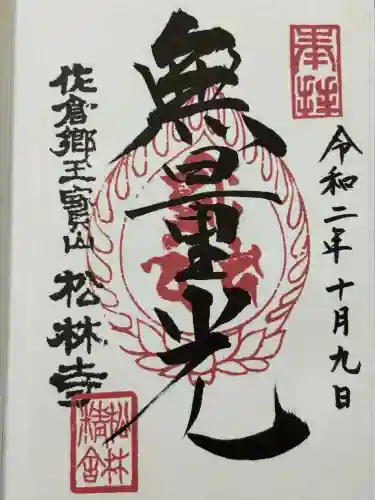 奉拝
令和二年十月九日
無量光
佐倉郷王寳山 松林寺
松林精舎